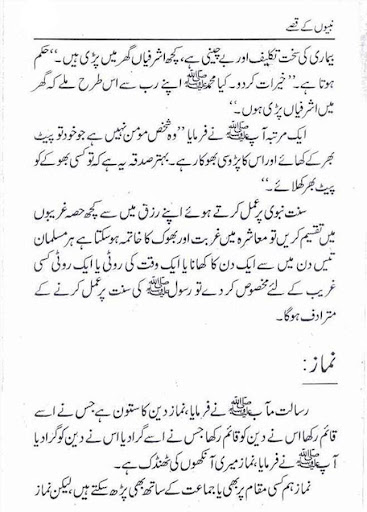 نبیوں کے قصے
بیماری کی سخت تکلیف اور بے چینی ہے، کچھ اشرفیاں گھر میں پڑی ہیں۔“ حکم
ہوتا ہے۔ ”خیرات کردو۔ کیا محمد ﷺ اپنے رب سے اس طرح ملے کہ گھر
میں اشرفیاں پڑی ہوں۔“
ایک مرتبہ آپ ﷺ نے فرمایا ”وہ شخص مؤمن نہیں ہے جو خود تو پیٹ
بھر کے کھائے اور اس کا پڑوسی بھوکا رہے۔ بہتر صدقہ یہ ہے کہ تو کسی بھوکے کو
پیٹ بھر کھلائے۔“
سنت نبوی پر عمل کرتے ہوئے اپنے رزق میں سے کچھ حصہ غریبوں
میں تقسیم کریں تو معاشرہ میں غربت اور بھوک کا خاتمہ ہوسکتا ہے ہر مسلمان
تیس دن میں سے ایک دن کا کھانا یا ایک وقت کی روٹی یا ایک روٹی کسی
غریب کے لئے مخصوص کر دے تو رسول ﷺ کی سنت پر عمل کرنے کے
مترادف ہوگا۔
نماز:
رسالت مآب ﷺ نے فرمایا، نماز دین کا ستون ہے جس نے اسے
قائم رکھا اس نے دین کو قائم رکھا جس نے اسے گرا دیا اس نے دین کو گرا دیا
آپ ﷺ نے فرمایا، نماز میری آنکھوں کی ٹھنڈک ہے۔
نماز ہم کسی مقام پر بھی یا جماعت کے ساتھ بھی پڑھ سکتے ہیں، لیکن نماز